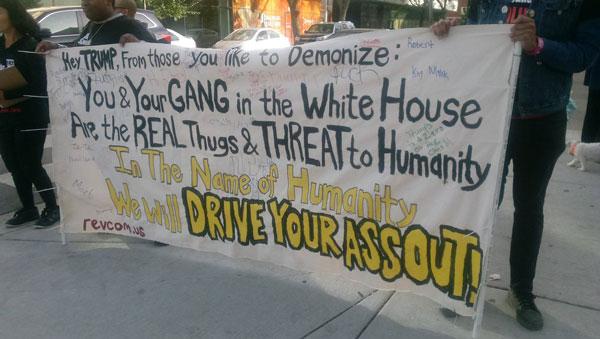 Hey TRUMP, From those you like to Demonize:
You & Your GANG in the White House
Are the REAL Thugs & THREAT to Humanity
In The Name of Humanity
We Will DRIVE YOUR ASS OUT!
revcom.us
Robert